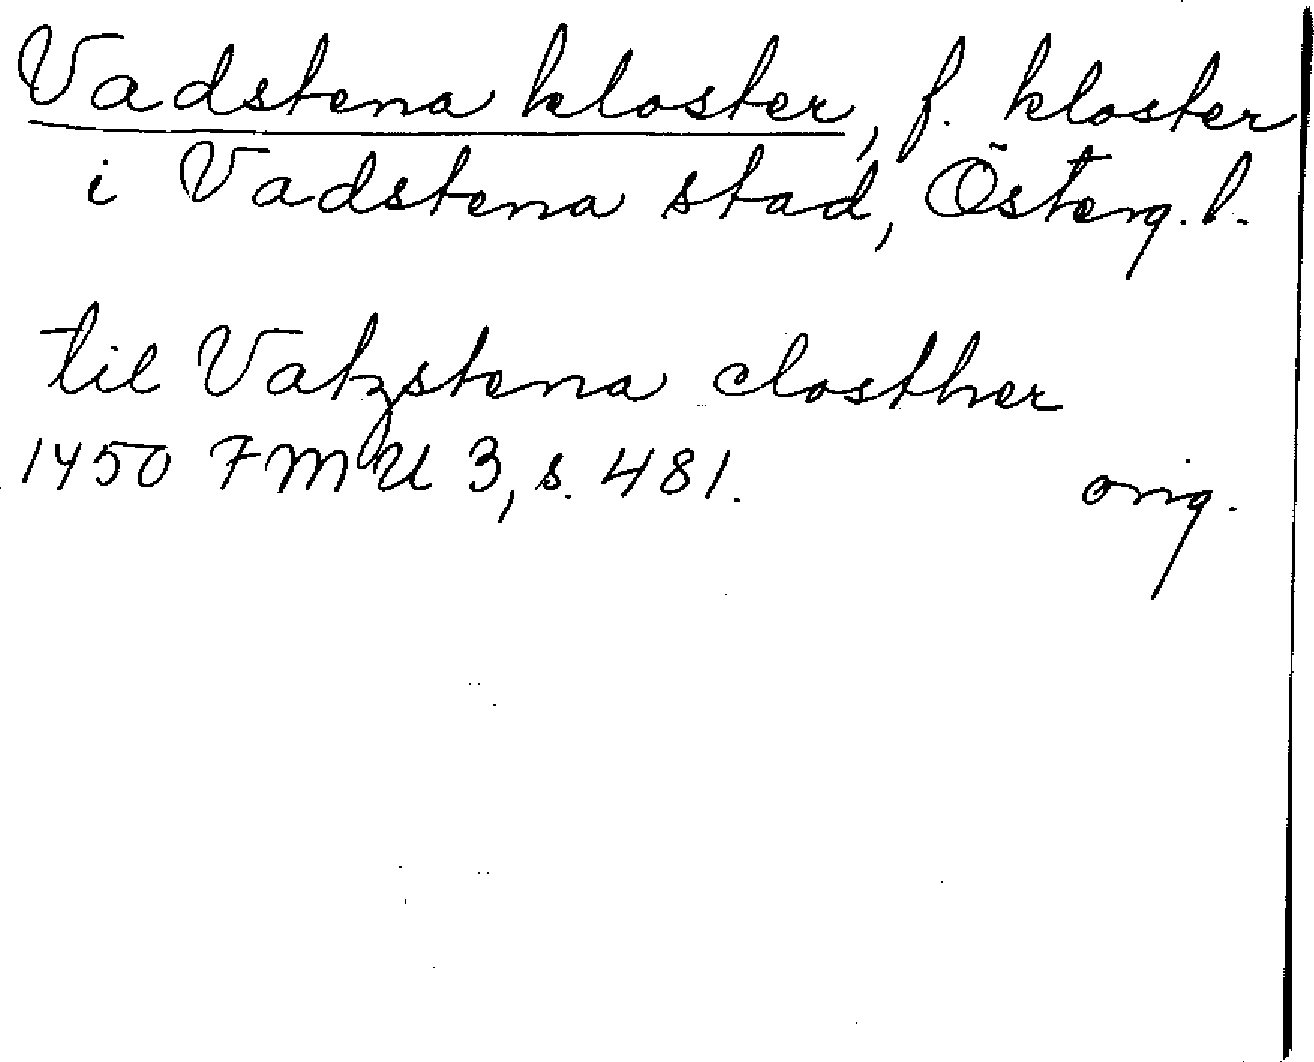 Vadstena kloster, f. kloster
i Vadstena stad, Österg. l.
til Vatzstena closther
1450 FMU 3, s. 481. orig.